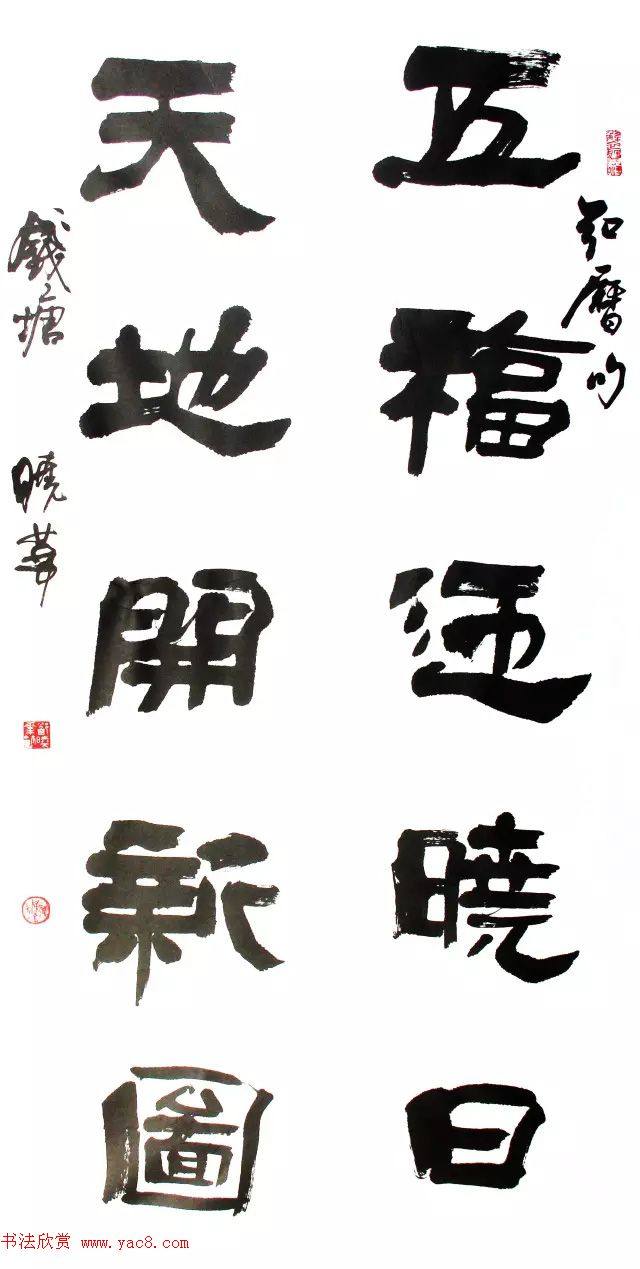 五福迎曉日
天地開新圖
錢塘 曉
书法欣赏 www.yac8.com